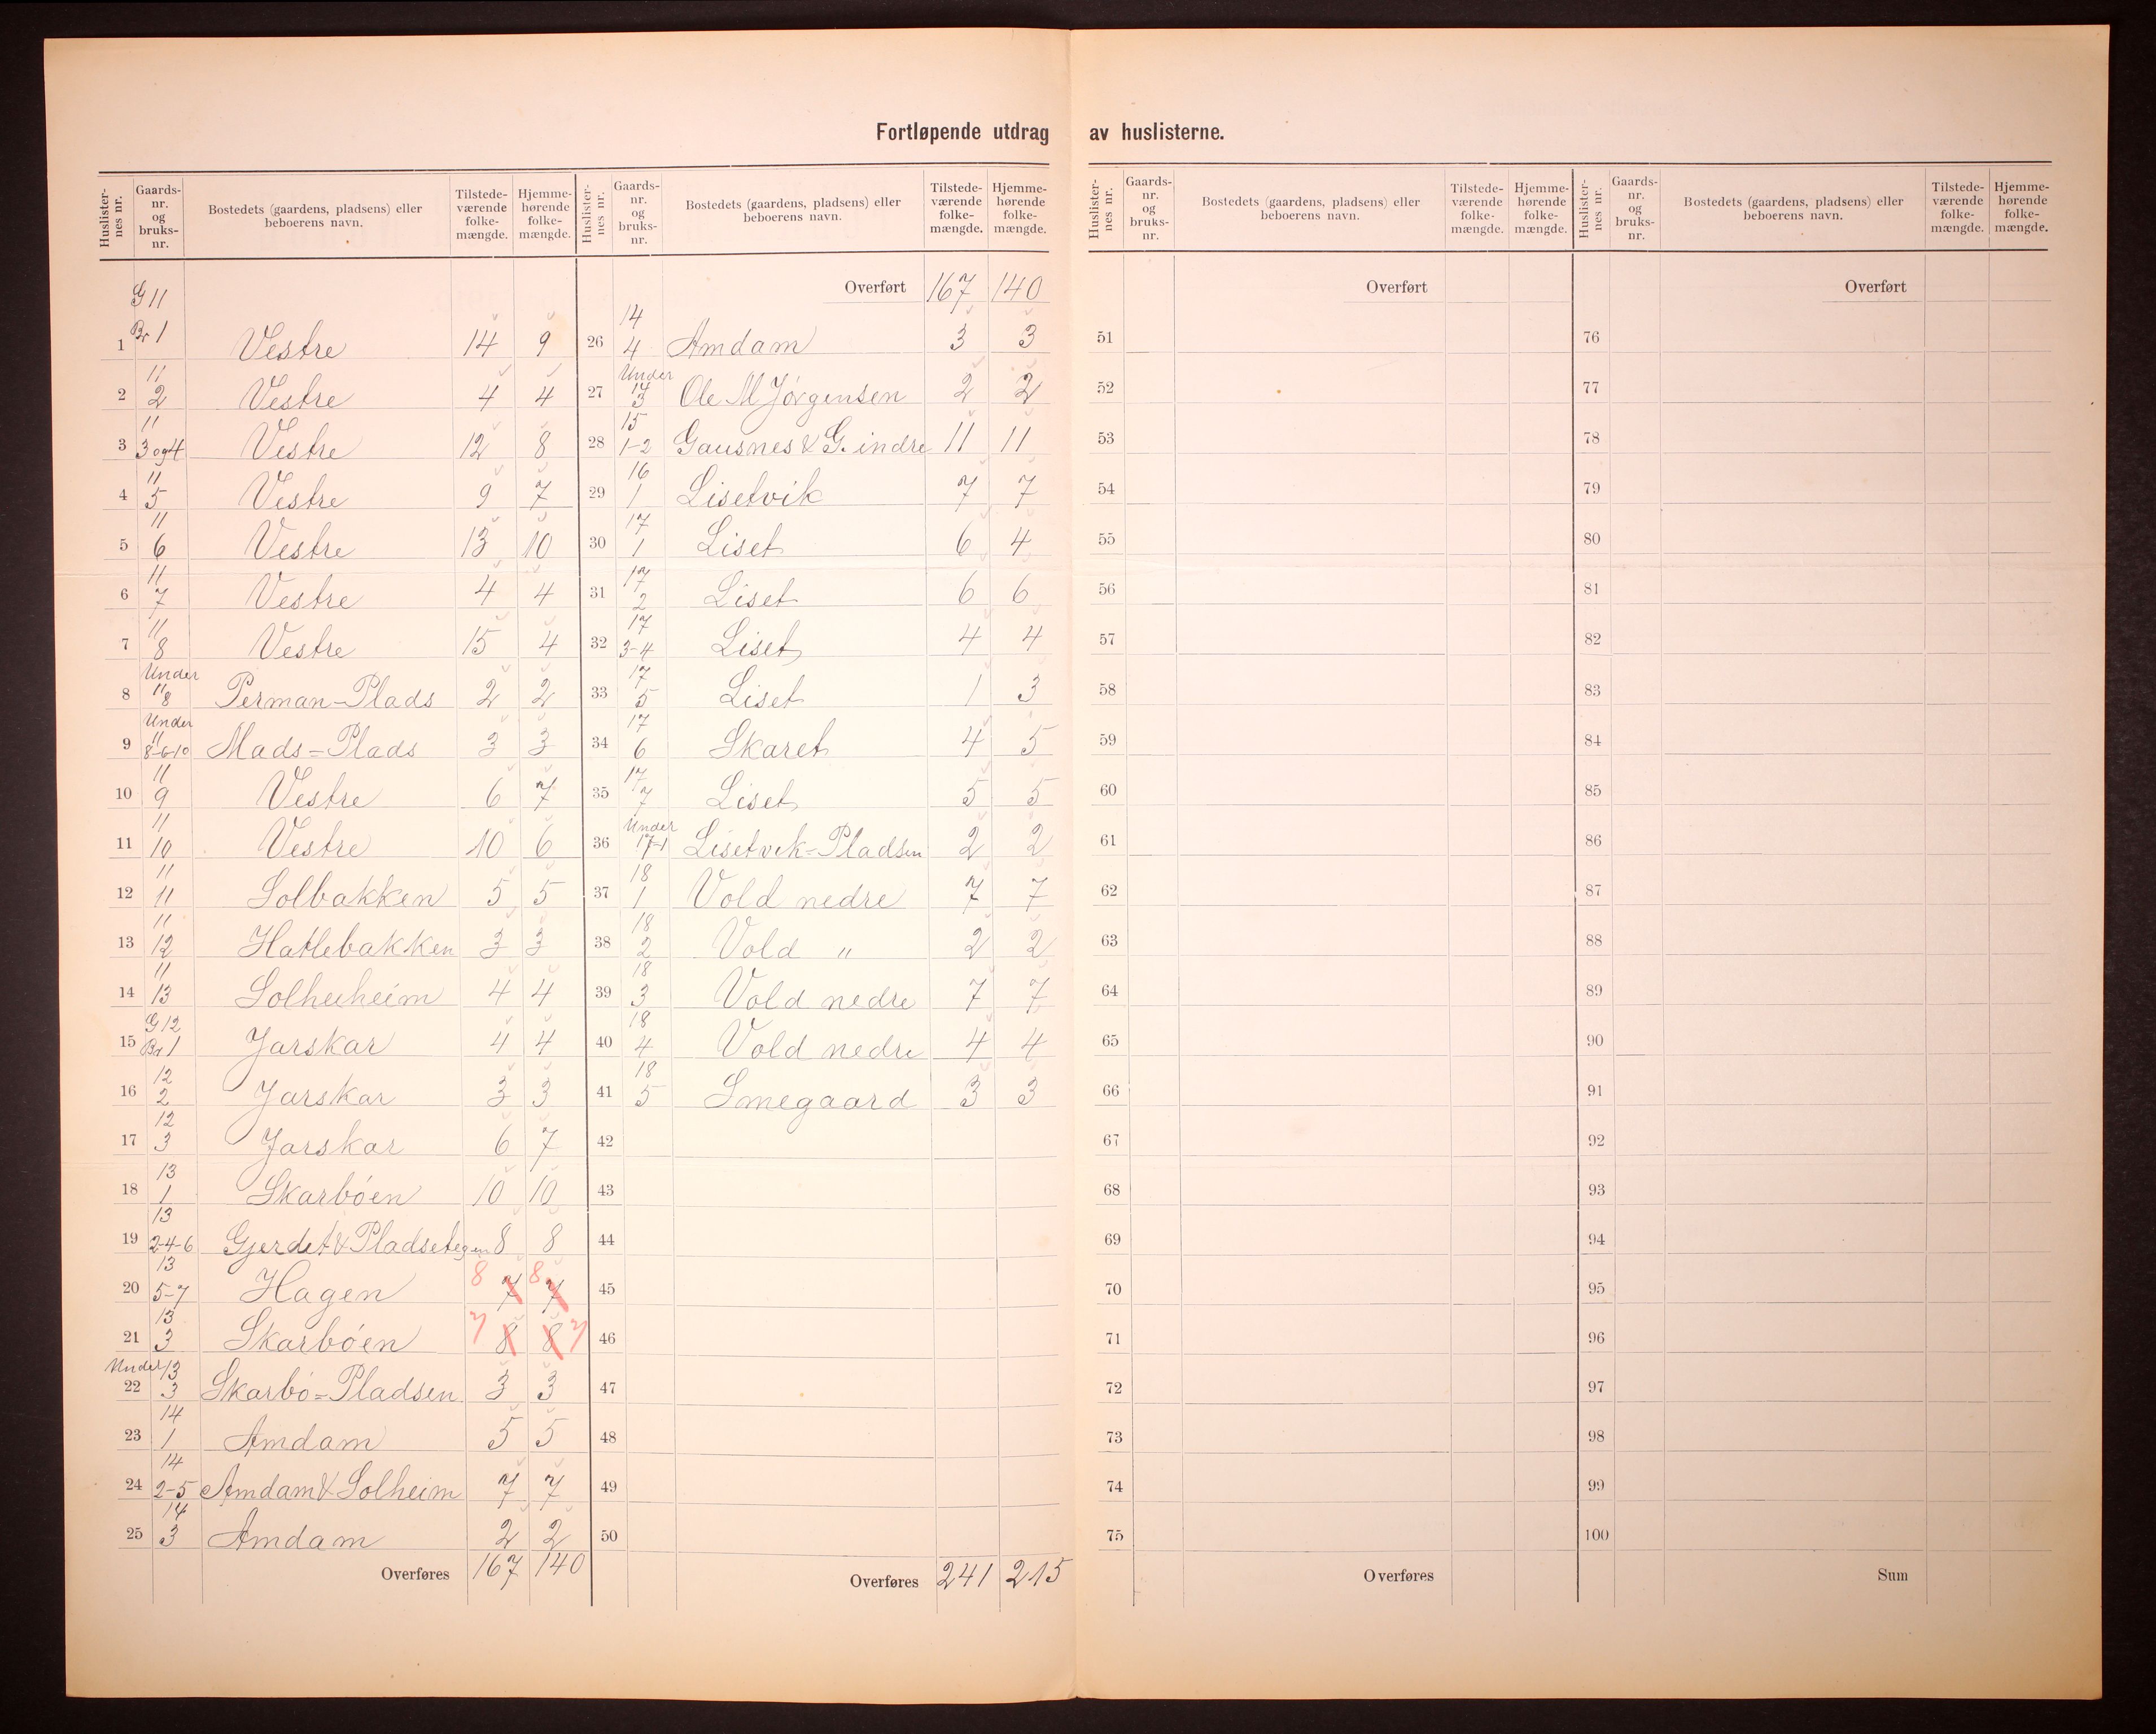 Fortløpende utdrag av huslisterne.
Huslisternes nr. | Gaards-nr. og bruks-nr. | Bostedets (gaardens, pladsens) eller beboerens navn. | Tilstedeværende folkemængde. | Hjemmehørende folkemængde.
1 | G 11 Br 1 | Vestre | 14 | 9
2 | 11 2 | Vestre | 4 | 4
3 | 11 3 og 4 | Vestre | 12 | 8
4 | 11 5 | Vestre | 9 | 7
5 | 11 6 | Vestre | 13 | 10
6 | 11 7 | Vestre | 4 | 4
7 | 11 8 | Vestre | 15 | 4
8 | Under 11 8 | Perman-Plads | 2 | 2
9 | Under 11 8-6-10 | Mads=Plads | 3 | 3
10 | 11 9 | Vestre | 6 | 7
11 | 11 10 | Vestre | 10 | 6
12 | 11 11 | Solbakken | 5 | 5
13 | 11 12 | Hatlebakken | 3 | 3
14 | 11 13 | 4 | 4
15 | G 12 Br 1 | Jarskar | 4 | 4
16 | 12 2 | Jarskar | 3 | 3
17 | 12 3 | Jarskar | 6 | 7
18 | 13 1 | Skarbøen | 10 | 10
19 | 13 2-4-6 | Gjerdet & Pladsetegen | 8 | 8
20 | 13 5-7 | Hagen | 8 7 | 8 7
21 | 13 3 | Skarbøen | 7 8 | 8 7
22 | Under 13 3 | Skarbø=Pladsen | 3 | 3
23 | 14 1 | Amdam | 5 | 5
24 | 14 2-5 | Amdam & Solheim | 7 | 7
25 | 14 3 | Amdam | 2 | 2
Overføres | 167 | 140
Huslisternes nr. | Gaards-nr. og bruks-nr. | Bostedets (gaardens, pladsens) eller beboerens navn. | Tilstedeværende folkemængde. | Hjemmehørende folkemængde.
Overført | 167 | 140
26 | 14 4 | Amdam | 3 | 3
27 | Under 14 3 | Ole M Jørgensen | 2 | 2
28 | 15 1-2 | Gausnes & G. indre | 11 | 11
29 | 16 1 | Lisetvik | 7 | 7
30 | 17 1 | Liset | 6 | 4
31 | 17 2 | Liset | 6 | 6
32 | 17 3-4 | Liset | 4 | 4
33 | 17 5 | Liset | 1 | 3
34 | 17 6 | Skaret | 4 | 5
35 | 17 7 | Liset | 5 | 5
36 | Under 17-1 | Lisetvik=Pladsen | 2 | 2
37 | 18 1 | Vold nedre | 7 | 7
38 | 18 2 | Vold " | 2 | 2
39 | 18 3 | Vold nedre | 7 | 7
40 | 18 4 | Vold nedre | 4 | 4
41 | 18 5 | Smegaard | 3 | 3
42
43
44
45
46
47
48
49
50
Overføres | 241 | 215
Huslisternes nr. | Gaards-nr. og bruks-nr. | Bostedets (gaardens, pladsens) eller beboerens navn. | Tilstedeværende folkemængde. | Hjemmehørende folkemængde.
Overført
51
52
53
54
55
56
57
58
59
60
61
62
63
64
65
66
67
68
69
70
71
72
73
74
75
Overføres
Huslisternes nr. | Gaards-nr. og bruks-nr. | Bostedets (gaardens, pladsens) eller beboerens navn. | Tilstedeværende folkemængde. | Hjemmehørende folkemængde.
Overført
76
77
78
79
80
81
82
83
84
85
86
87
88
89
90
91
92
93
94
95
96
97
98
99
100
Sum